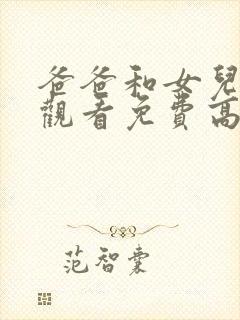 爸爸和女兒
觀看免費高
范智囊